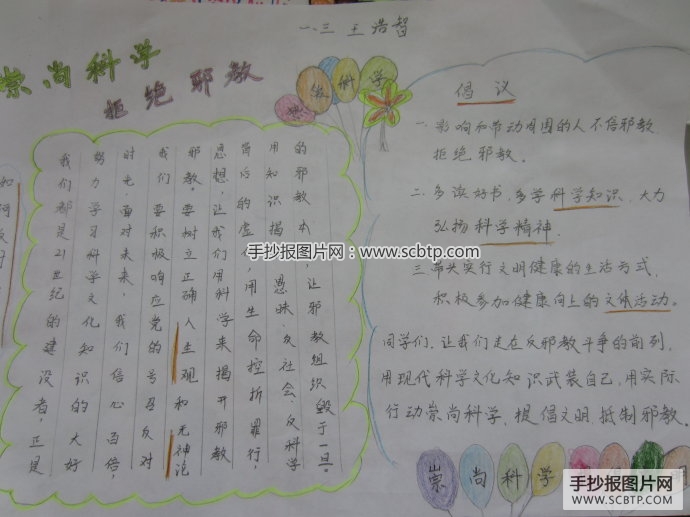 一.三 王浩智
崇尚科学
拒绝邪教
科学
我们都是21世纪的建设者，正是
努力学习科学文化知识的大好
时光面对未来，我们信心百倍，
我们要积极响应党的号召反对
邪教。要树立正确人生观和无神论
思想，让我们用科学来揭开邪教
背后的虚伪，用生命控折罪行，
用知识揭愚昧、反社会、反科学
的邪教本，让邪教组织毁于一旦。
倡议
一.影响和带动周围的人不信邪教
拒绝邪教。
二.多读好书，多学科学知识，大力
弘扬科学精神.
三.带头实行文明健康的生活方式，
积极参加健康向上的文体活动。
同学们，让我们走在反邪教斗争的前列，
用现代科学文化知识武装自己，用实际
行动崇尚科学，提倡文明，抵制邪教。
崇尚科学
手抄报图片网：www.scbtp.com
手抄报图片网
WWW.SCBTP.COM